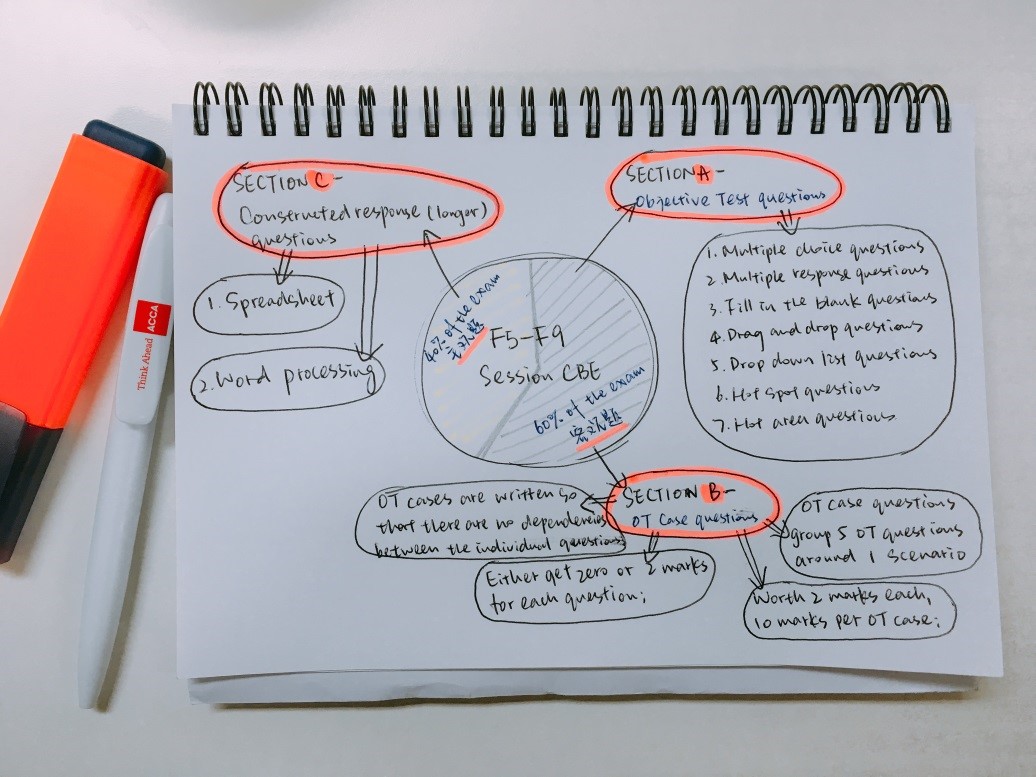 SECTION C-
Constructed response (longer)
questions
1. Spreadsheet
2. Word processing
SECTION A-
Objective Test questions
1. Multiple choice questions
2. Multiple response questions
3. Fill in the blank questions
4. Drag and drop questions
5. Drop down list questions
6. Hot spot questions
7. Hot area questions
40% of the exam
主观题
F5-F9
Session CBE
60% of the exam
客观题
SECTION B-
OT Case questions
OT cases are written so
that there are no dependencies
between the individual questions
Either get zero or 2 marks
for each question;
OT Case questions
group 5 OT questions
around 1 scenario
Worth 2 marks each,
10 marks per OT case;
Think Ahead ACCA